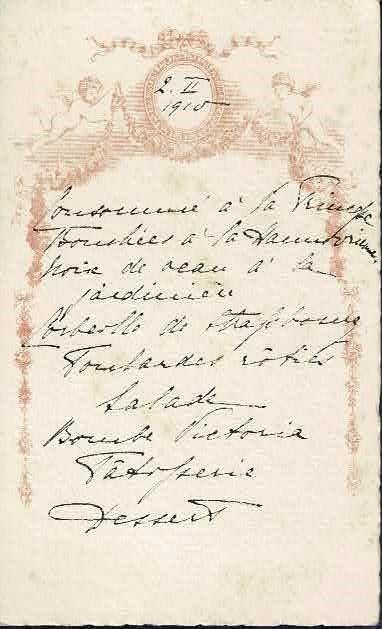 2. II
1910
Consommé à la Princesse
Bouchées à la Hannovrienne
Noix de veau à la
jardinière
de Strasbourg
Poulardes rôties
Salade
Bombe Victoria
Pâtisserie
Dessert